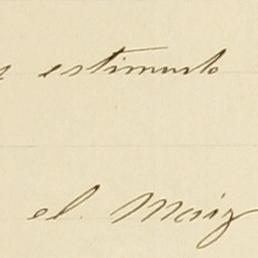 y estimulo
el Maiz